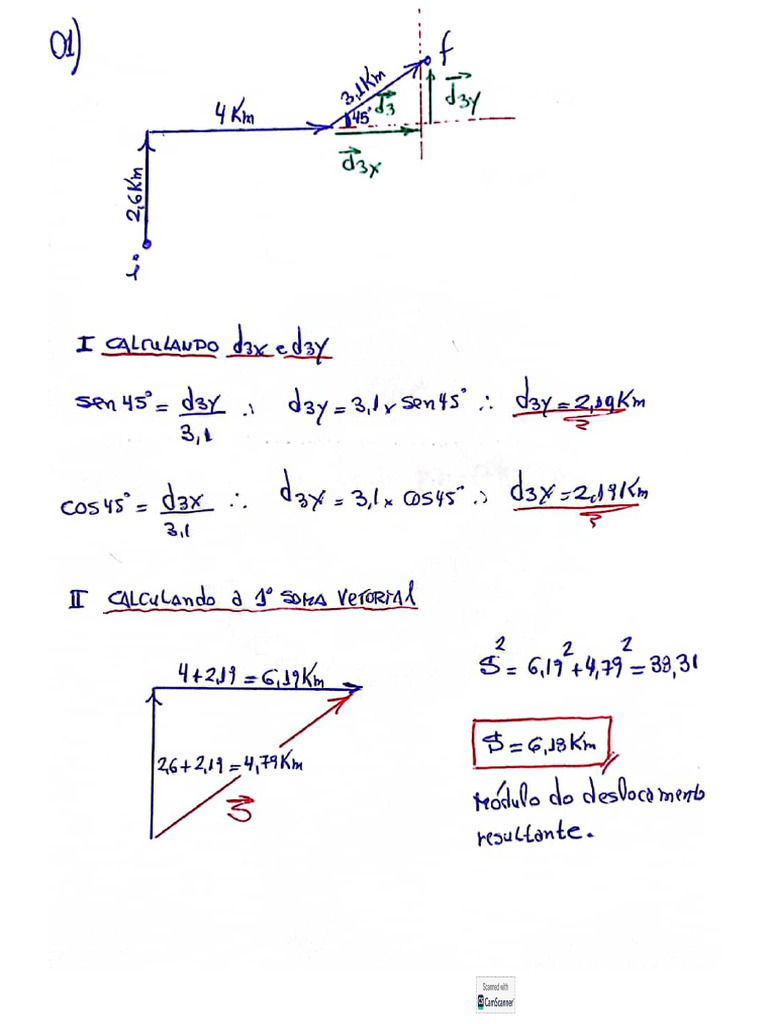 01)
f
3,1Km
d3
d3y
4 Km
45°
d3x
2,6Km
i
I CALCULANDO d3x e d3y
sen 45° = d3y/3,1 ∴ d3y = 3,1 x sen 45° ∴ d3y = 2,19 Km
cos 45° = d3x/3,1 ∴ d3x = 3,1 x cos 45° ∴ d3x = 2,19 Km
II CALCULANDO a 1º SOMA VETORIAL
4+2,19 = 6,19 Km
S² = 6,19² + 4,79² = 38,31
2,6+2,19 = 4,79 Km
S
S = 6,18 Km
Módulo do deslocamento
resultante.
Scanned with
CS CamScanner